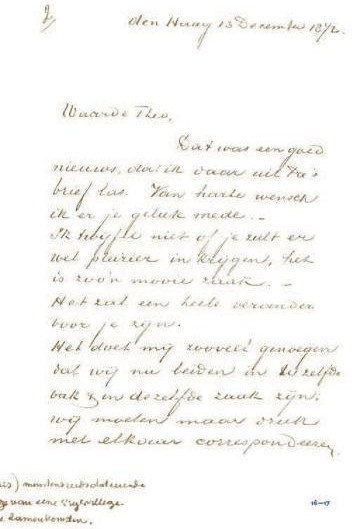 2,
den Haag 13 December 1872.
Waarde Theo,
Dat was een goed
nieuws, dat ik daar uit Pa's
brief las. Van harte wensch
ik er je geluk mede. _
Ik twijfle niet of je zult er
wel pleizier in krijgen, het
is zoo'n mooie zaak. _
Het zal een heele verander
voor je zijn.
Het doet mij zooveel genoegen
dat wij nu beiden in dezelfde
vak & in dezelfde zaak zijn;
wij moeten maar druk
met elkaar correspondeeren
van eene